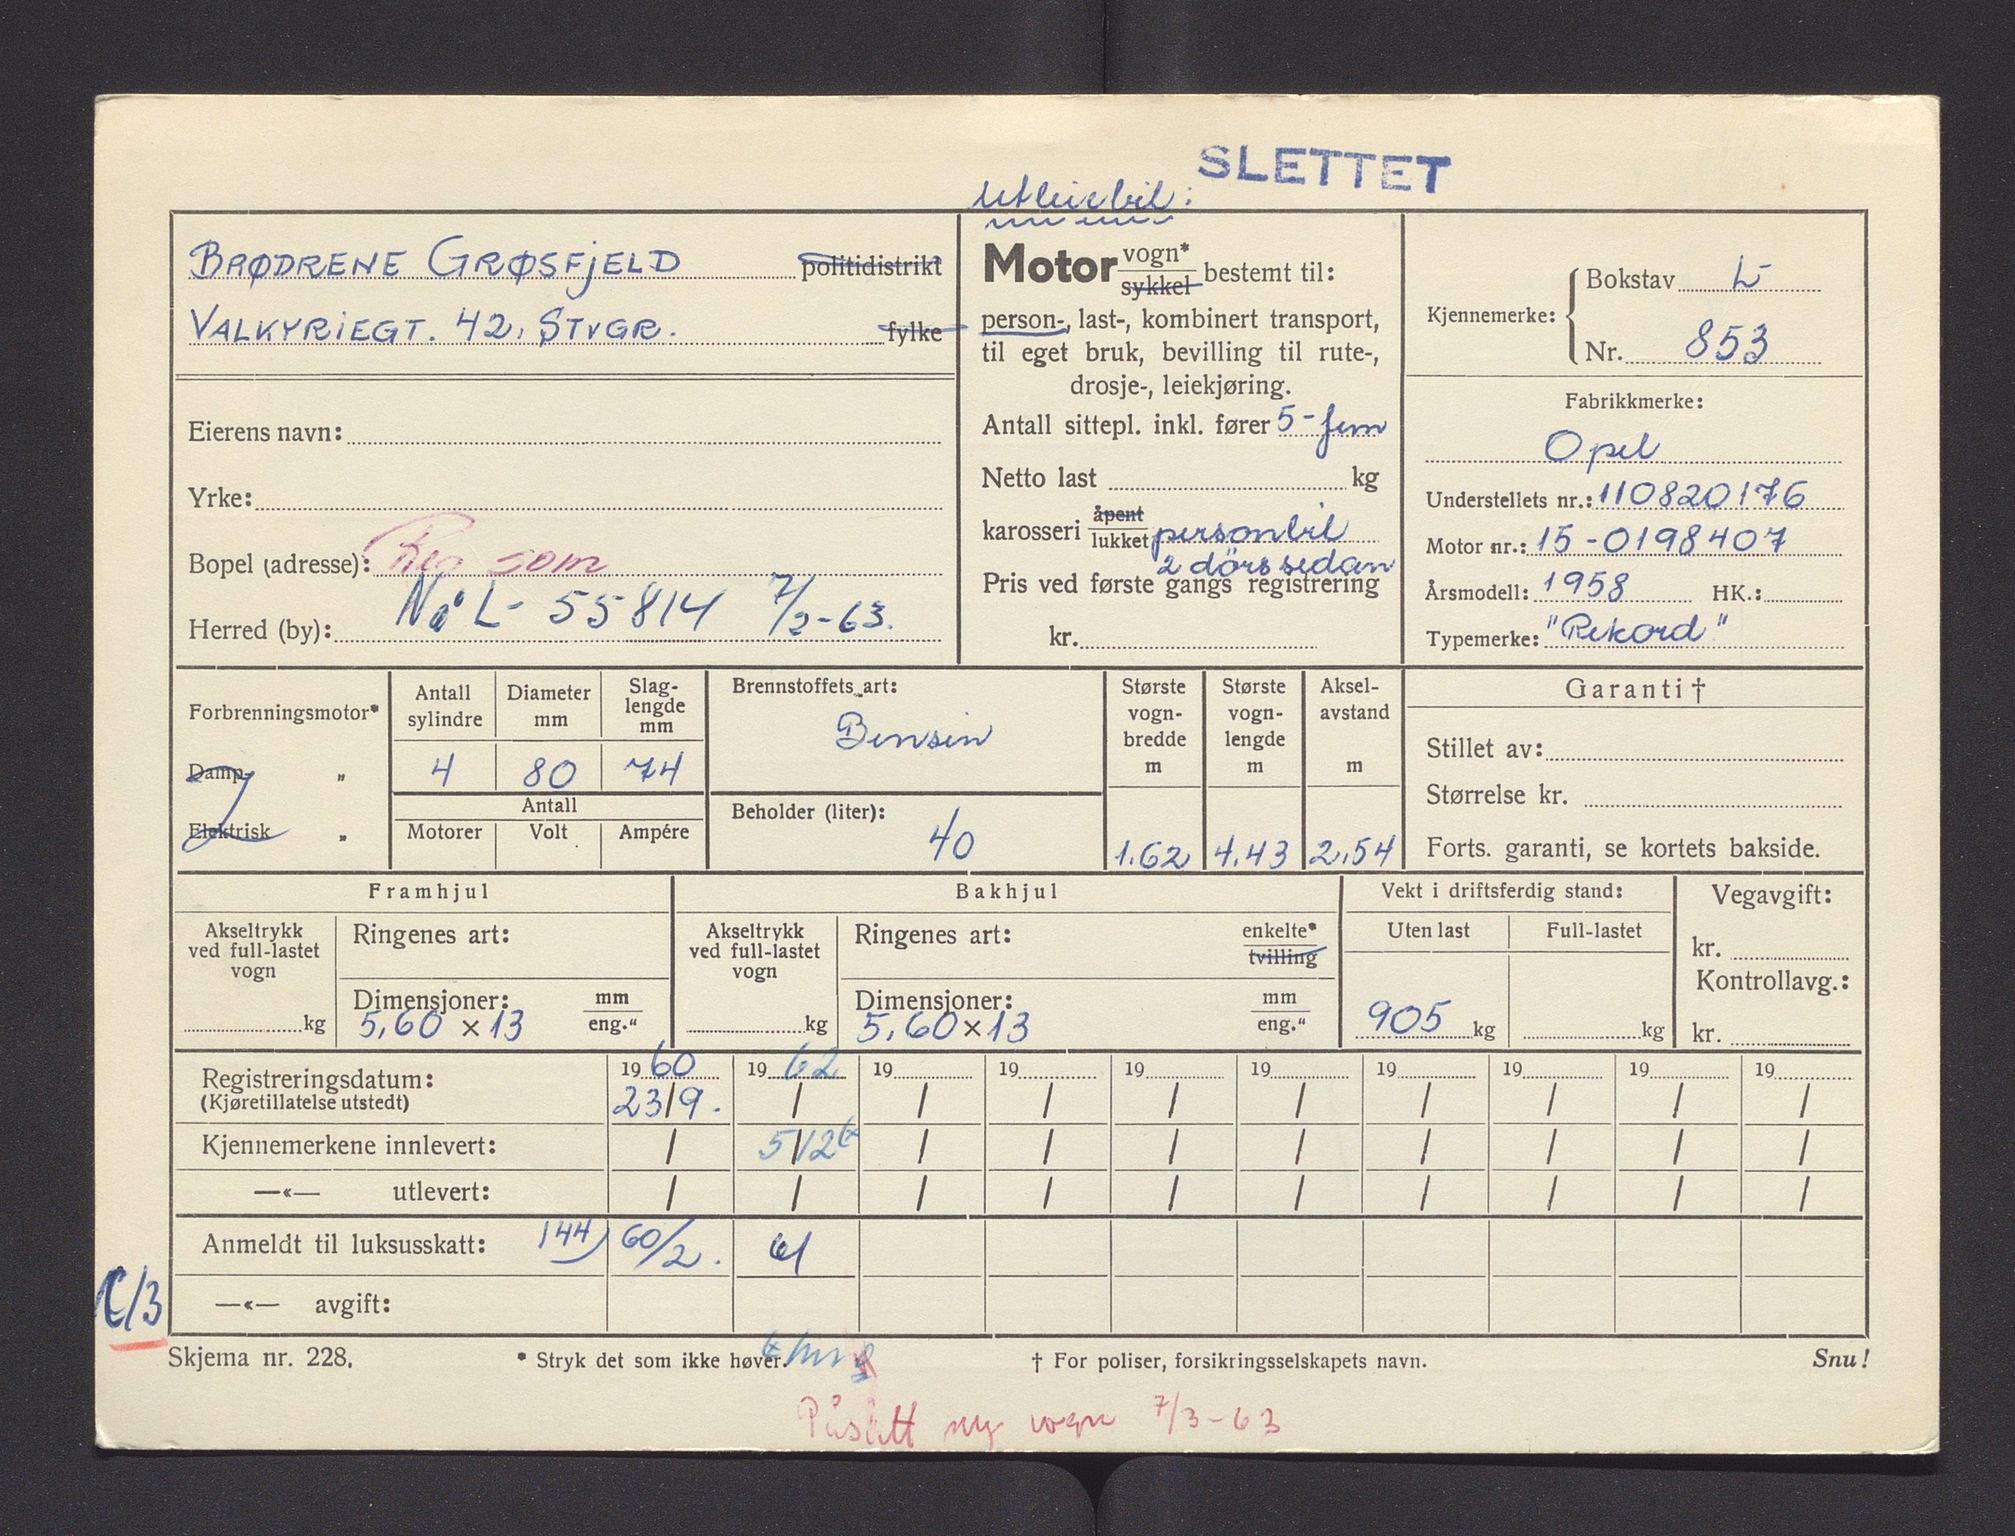 SLETTET
Utleiebil:
BRØDRENE GRØSFJELD politidistrikt
VALKYRIEGT. 42, STVGR. fylke
Eierens navn:
Yrke:
Bopel (adresse): Reg som
Herred (by): Nå L- 55814 7/2-63.
Motor vogn* sykkel bestemt til:
person-, last-, kombinert transport,
til eget bruk, bevilling til rute-,
drosje-, leiekjøring.
Antall sittepl. inkl. fører 5- fem
Netto last kg
karosseri åpent lukket personbil
2 dørs sedan
Pris ved første gangs registrering
kr.
Kjennemerke: Bokstav L
Nr. 853
Fabrikkmerke:
Opel
Understellets nr.: 110820176
Motor nr.: 15-0198407
Årsmodell: 1958 HK.:
Typemerke: "Rekord"
Forbrenningsmotor*
Damp- "
Elektrisk "
Antall sylindre Diameter mm Slag-lengde mm
4 80 74
Antall
Motorer Volt Ampére
Brennstoffets art:
Bensin
Beholder (liter):
40
Største vogn-bredde m
1.62
Største vogn-lengde m
4.43
Aksel-avstand m
2,54
Garanti †
Stillet av:
Størrelse kr.
Forts. garanti, se kortets bakside.
Framhjul
Akseltrykk ved full-lastet vogn
kg
Ringenes art:
Dimensjoner: mm eng."
5,60 x 13
Bakhjul
Akseltrykk ved full-lastet vogn
kg
Ringenes art: enkelte* tvilling
Dimensjoner: mm eng."
5,60 x 13
Vekt i driftsferdig stand:
Uten last Full-lastet
905 kg kg
Vegavgift:
kr.
Kontrollavg.:
kr.
Registreringsdatum: 1960 1962 19 19 19 19 19 19 19 19
(Kjøretillatelse utstedt) 23/9. / / / / / / / / /
Kjennemerkene innlevert: / 5/12 / / / / / / / /
—«— utlevert: / / / / / / / / / /
Anmeldt til luksusskatt: 144) 60/2. 61
—«— avgift:
C/3
Skjema nr. 228. * Stryk det som ikke høver. † For poliser, forsikringsselskapets navn. Snu!
Påsatt ny vogn 7/3-63